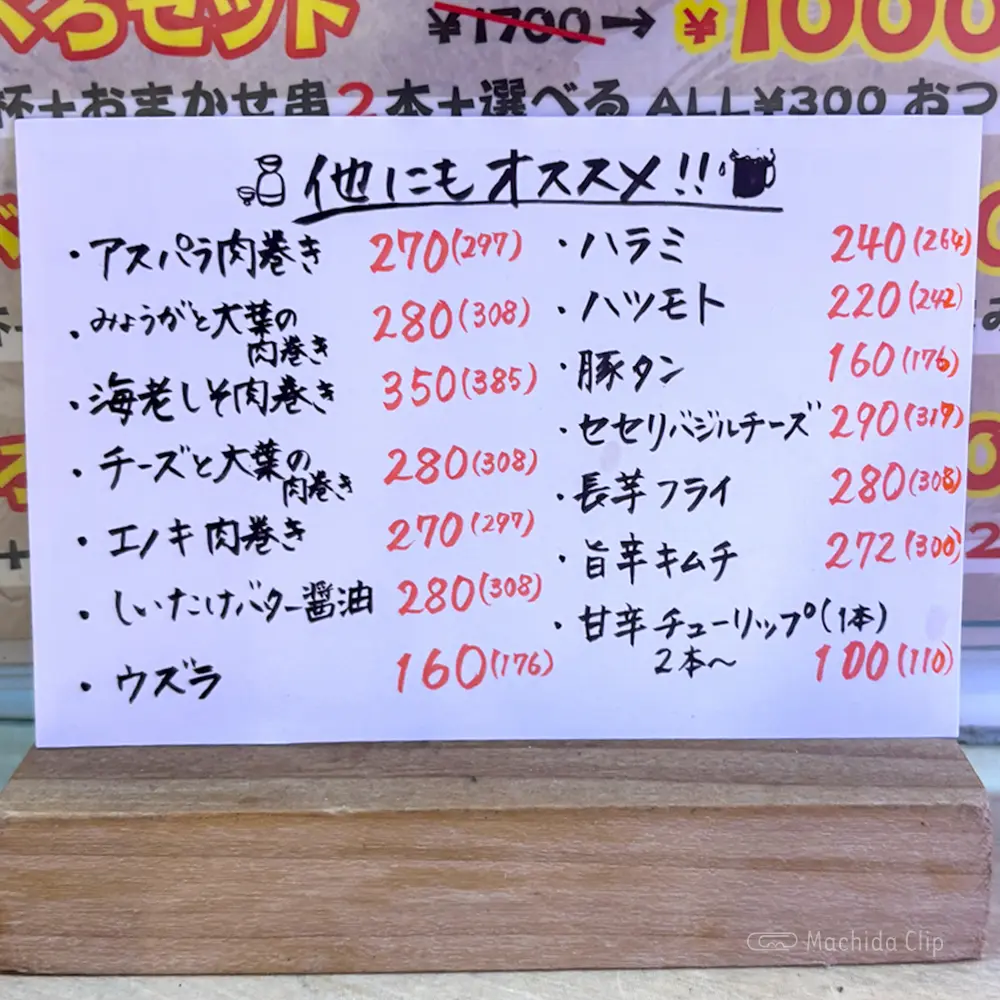 ろセット ¥1700→¥1000
杯+おまかせ串2本+選べる ALL¥300 おつ
他にもオススメ!!
・アスパラ肉巻き 270(297)
・みょうがと大葉の
肉巻き 280(308)
・海老しそ肉巻き 350(385)
・チーズと大葉の
肉巻き 280(308)
・エノキ肉巻き 270(297)
・しいたけバター醤油 280(308)
・ウズラ 160(176)
・ハラミ 240(264)
・ハツモト 220(242)
・豚タン 160(176)
・セセリバジルチーズ 290(319)
・長芋フライ 280(308)
・旨辛キムチ 272(300)
・甘辛チューリップ(1本)
2本〜 100(110)
Machida Clip